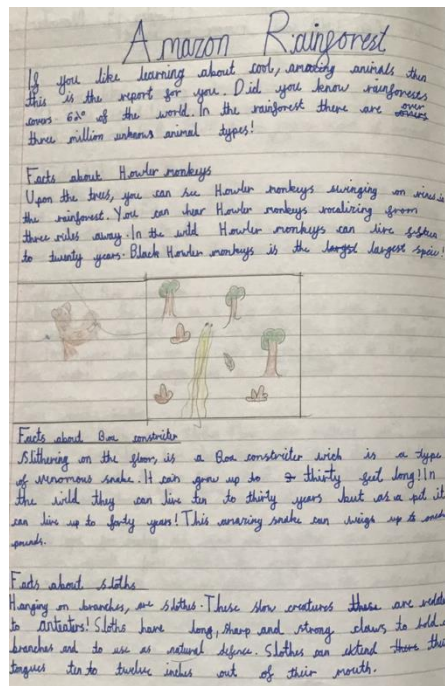 Amazon Rainforest
If you like learning about cool, amazing animals then
this is the report for you. Did you know rainforests
covers 6% of the world. In the rainforest there are over
three million unknows animal types!
Facts about Howler monkeys
Upon the trees, you can see Howler monkeys swinging on vines in
the rainforest. You can hear Howler monkeys vocalizing from
three miles away. In the wild Howler monkeys can live fifteen
to twenty years. Black Howler monkeys is the largst largest spice!
Facts about Boa constricter
Slithering on the floor, is a Boa constricter wich is a type
of venomous snake. It can grow up to thirty feet long! In
the wild they can live ten to thirty years but as a pet it
can live up to forty years! This amazing snake can weigh up to
pounds.
Facts about sloths
Hanging on branches, are slothes. These slow creatures these are
to anteaters! Sloths have long, sharp and strong claws to hold
branches and to use as natural defence. Slothes can extend there
tongues ten to twelve inches out of their mouth.